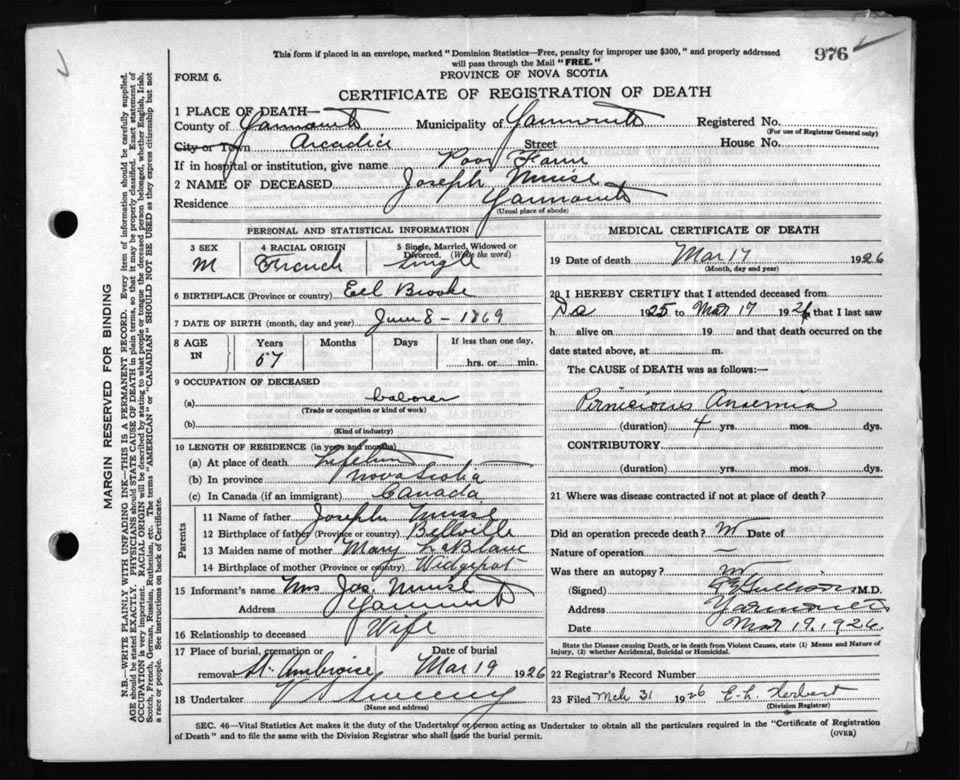 976
This form if placed in an envelope, marked "Dominion Statistics—Free, penalty for improper use $300," and properly addressed
will pass through the Mail "FREE."
FORM 6.
PROVINCE OF NOVA SCOTIA
CERTIFICATE OF REGISTRATION OF DEATH
1 PLACE OF DEATH—
County of Yarmouth Municipality of Yarmouth Registered No.
(For use of Registrar General only)
City or Town Arcadia Street House No.
If in hospital or institution, give name Poor Farm
2 NAME OF DECEASED Joseph Muise
Residence Yarmouth
(Usual place of abode)
PERSONAL AND STATISTICAL INFORMATION
3 SEX 4 RACIAL ORIGIN 5 Single, Married, Widowed or
Divorced. (Write the word)
M French Single
6 BIRTHPLACE (Province or country) Eel Brooke
7 DATE OF BIRTH (month, day and year) June 8 - 1869
8 AGE IN Years Months Days If less than one day,
57 hrs. or min.
9 OCCUPATION OF DECEASED
(a) Laborer
(Trade or occupation or kind of work)
(b)
(Kind of industry)
10 LENGTH OF RESIDENCE (in years and months)
(a) At place of death Lifetime
(b) In province Nova Scotia
(c) In Canada (if an immigrant) Canada
Parents
11 Name of father Joseph Muise
12 Birthplace of father (Province or country) Bellville
13 Maiden name of mother Mary LeBlanc
14 Birthplace of mother (Province or country)
15 Informant's name Mrs Jos Muise
Address Yarmouth
16 Relationship to deceased Wife
17 Place of burial, cremation or Date of burial
removal St. Ambroise Mar 19 1926
18 Undertaker V S Sweeny
(Name and address)
MEDICAL CERTIFICATE OF DEATH
19 Date of death Mar 17 1926
(Month, day and year)
20 I HEREBY CERTIFY that I attended deceased from
1925 to Mar 17 1926 that I last saw
h alive on 19 and that death occurred on the
date stated above, at m.
The CAUSE of DEATH was as follows:—
Pernicious Anaemia
(duration) 4 yrs. mos. dys.
CONTRIBUTORY
(duration) yrs. mos. dys.
21 Where was disease contracted if not at place of death?
Did an operation precede death? Date of
Nature of operation —
Was there an autopsy?
(Signed) M.D.
Address Yarmouth
Date Mar 19, 1926
State the Disease causing Death, or in death from Violent Causes, state (1) Means and Nature of
Injury, (2) whether Accidental, Suicidal or Homicidal.
22 Registrar's Record Number
23 Filed Mch 31 1926 E. L. Herbert
(Division Registrar)
SEC. 46—Vital Statistics Act makes it the duty of the Undertaker or person acting as Undertaker to obtain all the particulars required in the "Certificate of Registration
of Death" and to file the same with the Division Registrar who shall issue the burial permit.
(OVER)
MARGIN RESERVED FOR BINDING
N.B.—WRITE PLAINLY WITH UNFADING INK—THIS IS A PERMANENT RECORD. Every item of information should be carefully supplied.
AGE should be stated EXACTLY. PHYSICIANS should STATE CAUSE OF DEATH in plain terms, so that it may be properly classified. Exact statement of
OCCUPATION is very important. RACIAL ORIGIN will be described by stating to what people or tongue the deceased person belonged, whether English, Irish,
Scotch, French, German, Russian, Ruthenian, etc. The terms "AMERICAN" or "CANADIAN" SHOULD NOT BE USED as they express citizenship but not
a race or people. See instructions on back of Certificate.